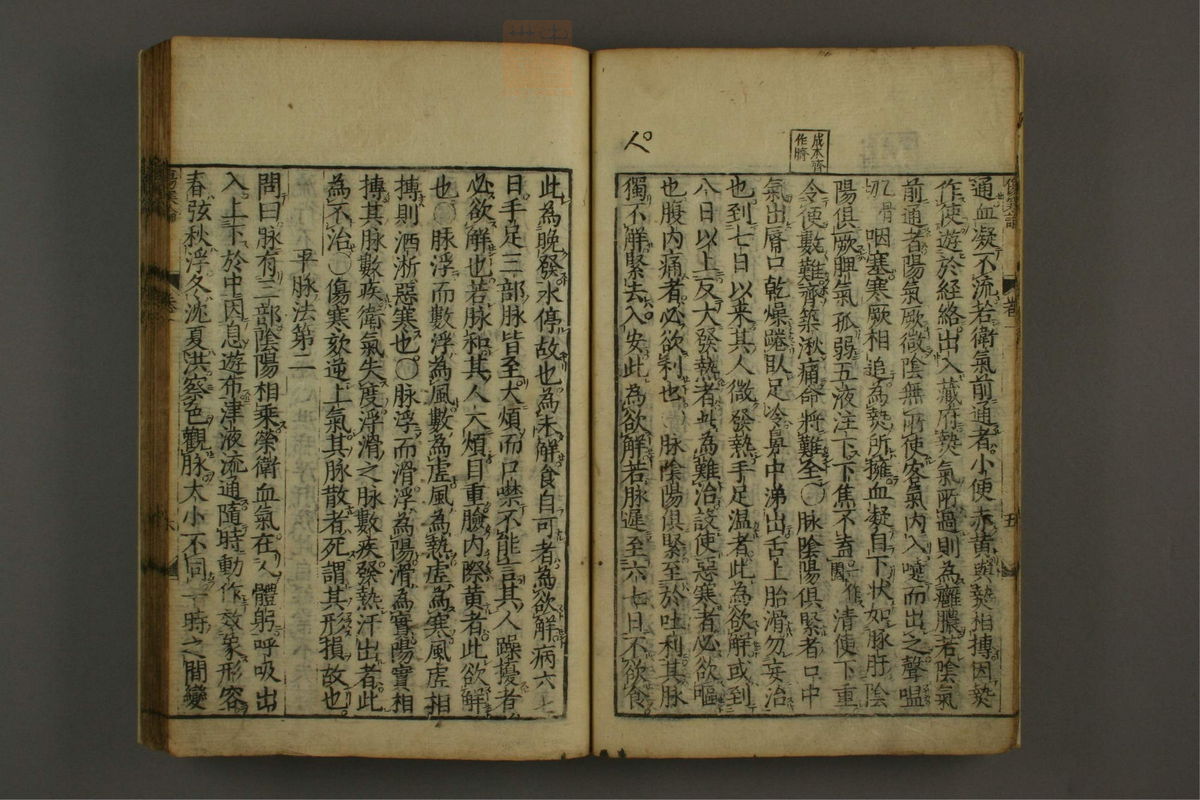 成本齊
作臍
傷寒論
卷一
五
通血凝不流若衛氣前通者小便赤黃與熱相搏因熱
作使遊於經絡出入藏府熱氣所過則為癰膿若陰氣
前通者陽氣厥微陰無所使客氣內入嚏而出之聲嗢
咽塞寒厥相追為熱所擁血凝自下狀如豚肝陰
陽俱厥脾氣孤弱五液注下下焦不盍清便下重
令便數難齊築湫痛命將難全〇脉陰陽俱緊者口中
氣出唇口乾燥踡臥足冷鼻中涕出舌上胎滑勿妄治
也到七日以来其人微發熱手足温者此為欲解或到
八日以上反大發熱者此為難治設使惡寒者必欲嘔
也腹內痛者必欲利也 脉陰陽俱緊至於吐利其脉
獨不解緊去入安此為欲解若脉遲至六七日不欲食
人
此為晚發水停故也為未解食自可者為欲解病六七
日手足三部脉皆至大煩而口噤不能言其人躁擾者
必欲解也若脉和其人大煩目重臉內際黃者此欲解
也〇脉浮而數浮為風數為虛風為熱虛為寒風虛相
搏則洒淅惡寒也〇脉浮而滑浮為陽滑為實陽實相
搏其脉數疾衛氣失度浮滑之脉數疾發熱汗出者此
為不治〇傷寒欬逆上氣其脉散者死謂其形損故也
平脉法第二
問曰脉有三部陰陽相乘榮衛血氣在人體躬呼吸出
入上下於中因息遊布津液流通隨時動作效象形容
春弦秋浮冬沈夏洪察色觀脉大小不同一時之間變